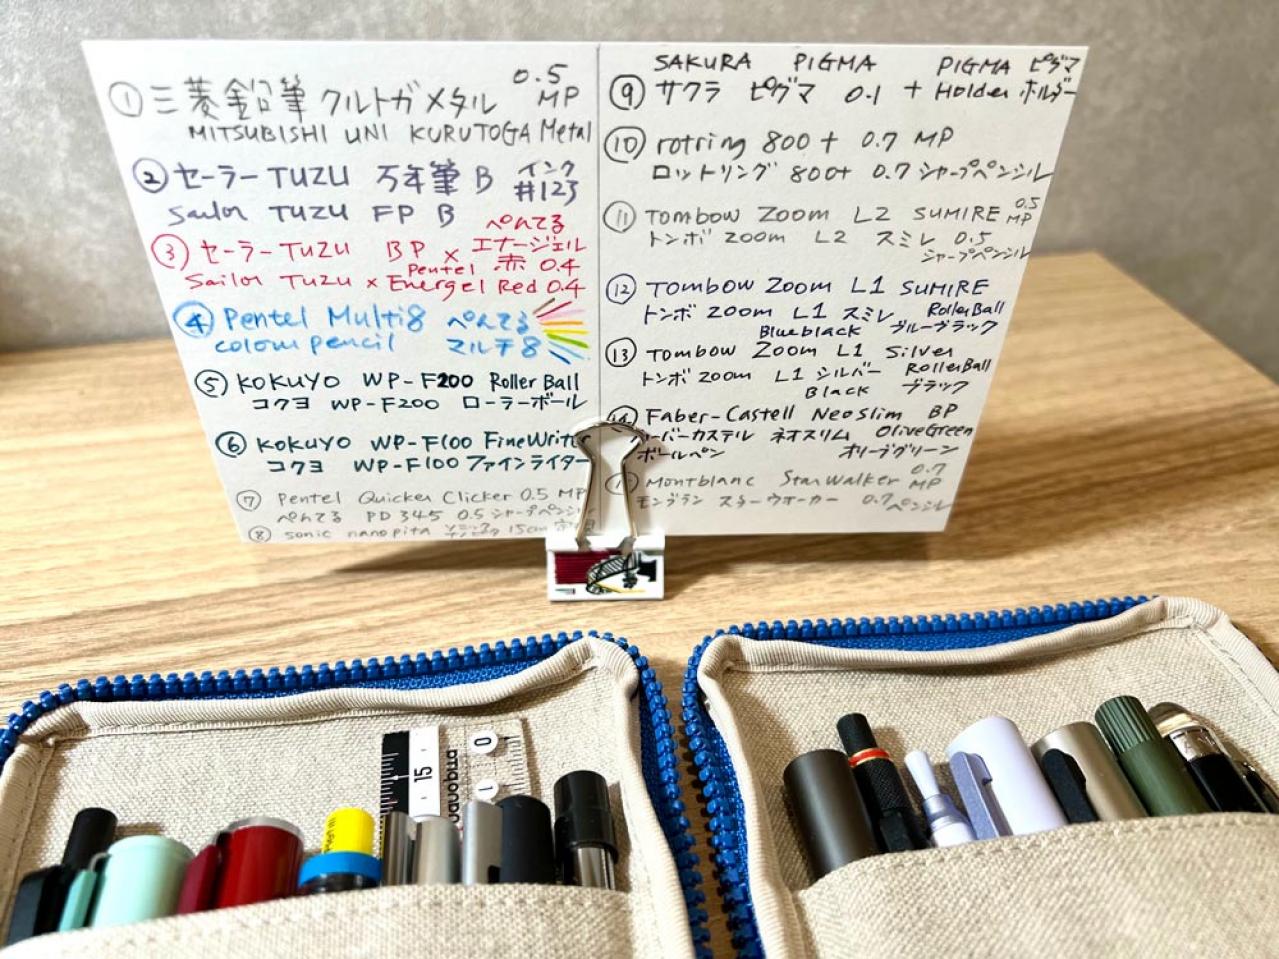 ① 三菱鉛筆 クルトガメタル 0.5 MP
MITSUBISHI UNI KURUTOGA Metal
② セーラー TUZU 万年筆 B インク #123
Sailor TUZU FP B
③ セーラー TUZU BP × ぺんてる エナージェル 赤 0.4
Sailor TUZU × Pentel Energel Red 0.4
④ Pentel Multi8 ぺんてる
colour pencil マルチ8
⑤ KOKUYO WP-F200 Roller Ball
コクヨ WP-F200 ローラーボール
⑥ KOKUYO WP-F100 FineWriter
コクヨ WP-F100 ファインライター
⑦ Pentel Quicker Clicker 0.5 MP
ぺんてる PD345 0.5 シャープペンシル
⑧ sonic nanopita ソニック ナノピタ 15cm
SAKURA PIGMA PIGMA ピグマ
⑨ サクラ ピグマ 0.1 + Holder ホルダー
⑩ rotring 800+ 0.7 MP
ロットリング 800+ 0.7 シャープペンシル
⑪ Tombow Zoom L2 SUMIRE 0.5 MP
トンボ zoom L2 スミレ 0.5
シャープペンシル
⑫ Tombow Zoom L1 SUMIRE
トンボ zoom L1 スミレ RollerBall
Blueblack ブルーブラック
⑬ Tombow Zoom L1 Silver
トンボ zoom L1 シルバー RollerBall
Black ブラック
⑭ Faber-Castell Neoslim BP
ファーバーカステル ネオスリム OliveGreen
ボールペン オリーブグリーン
⑮ Montblanc StarWalker 0.7 MP
モンブラン スターウォーカー 0.7 ペンシル
15
nanopita
0
1